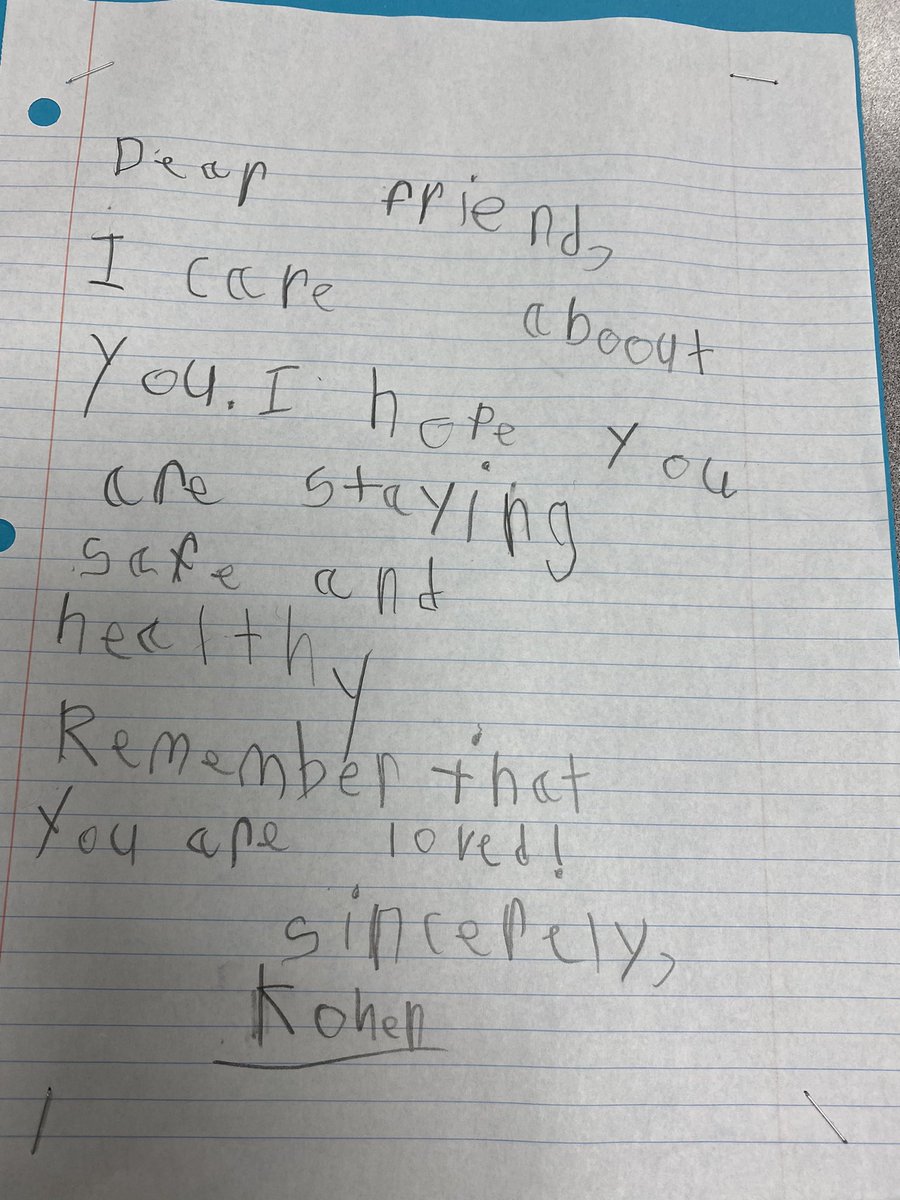 Dear friend,
I care aboout
you. I hope you
are staying
safe and
healthy
Remember that
you are loved!
sincerely,
Kohen